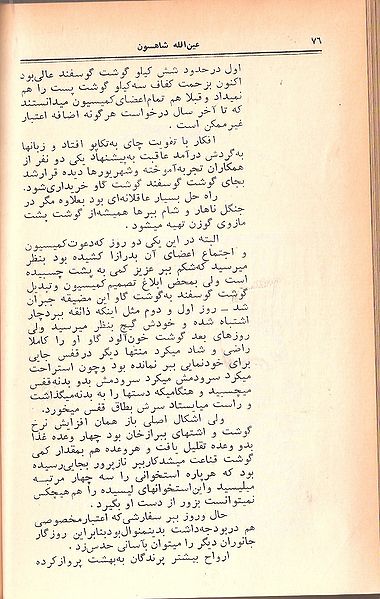 ۷۶
عین‌الله شاهسون
اول درحدود شش کیلو گوشت گوسفند عالی‌بود
اکنون بزحمت کفاف سه‌کیلو گوشت پست را هم
نمیداد و قبلا هم تمام‌اعضای‌کمیسیون میدانستند
که تا آخر سال درخواست هرگونه اضافه اعتبار
غیرممکن است .
افکار با تقویت چای به‌تکاپو افتاد و زبانها
به‌گردش درآمد عاقبت به‌پیشنهاد یکی دو نفر از
همکاران تجربه‌آموخته وشهریورها دیده قرارشد
بجای گوشت گوسفند گوشت گاو خریداری‌شود.
راه حل بسیار عاقلانه‌ای بود بعلاوه مگر در
جنگل ناهار و شام ببرها همیشه‌از گوشت پشت
مازوی گوزن تهیه میشود .
البته در این یکی دو روز که‌دعوت‌کمیسیون
و اجتماع اعضای آن بدرازا کشیده بود بنظر
میرسید که‌شکم ببر عزیز کمی به پشت چسبیده
است ولی بمحض ابلاغ تصمیم کمیسیون وتبدیل
گوشت گوسفند به‌گوشت گاو این مضیقه جبران
شد ــ روز اول و دوم مثل اینکه ذائقه ببردچار
اشتباه شده و خودش گیج بنظر میرسید ولی
روزهای بعد گوشت خون‌آلود گاو او را کاملا
راضی و شاد میکرد منتها دیگر درقفس جایی
برای خودنمایی ببر نمانده بود وچون استراحت
میکرد سرودمش میکرد سرودمش بدو بدنه‌قفس
میچسبید و هنگامیکه دستها را به بدنه‌میگذاشت
و راست میایستاد سرش بطاق قفس میخورد.
ولی اشکال اصلی باز همان افزایش نرخ
گوشت و اشتهای ببرازخان بود چهار وعده غذا
بدو وعده تقلیل یافت و هروعده هم بمقدار کمی
گوشت قناعت میشدکارببر نازپرور بجایی‌رسیده
بود که هرپاره استخوانی را سه چهار مرتبه
میلیسید واین‌استخوانهای لیسیده را هم‌هیچکس
نمیتوانست بزور از دست او بگیرد .
حال وروز ببر سفارشی‌که اعتبارمخصوصی
هم دربودجه‌داشت بدینمنوال‌بودبنابراین روزگار
جانوران دیگر را میتوان بآسانی حدس‌زد .
ارواح بیشتر پرندگان به‌بهشت پروازکرده